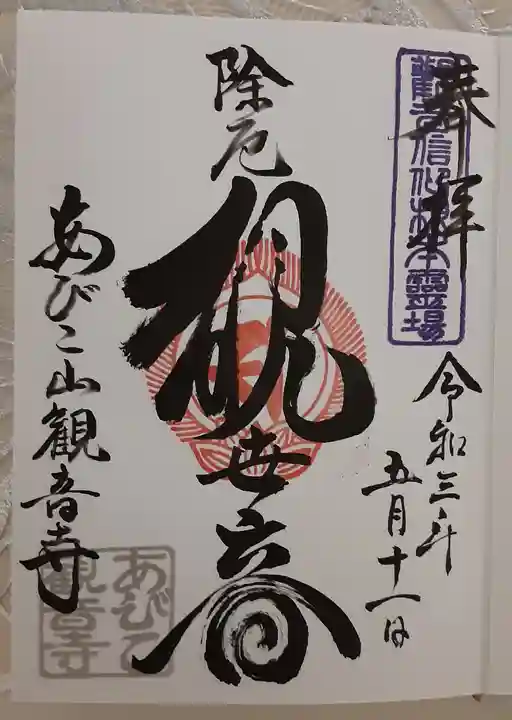 奉拝
觀音信仰根本靈場
令和三年
五月十一日
除厄
観世音
あびこ山観音寺
あびこ
観音寺